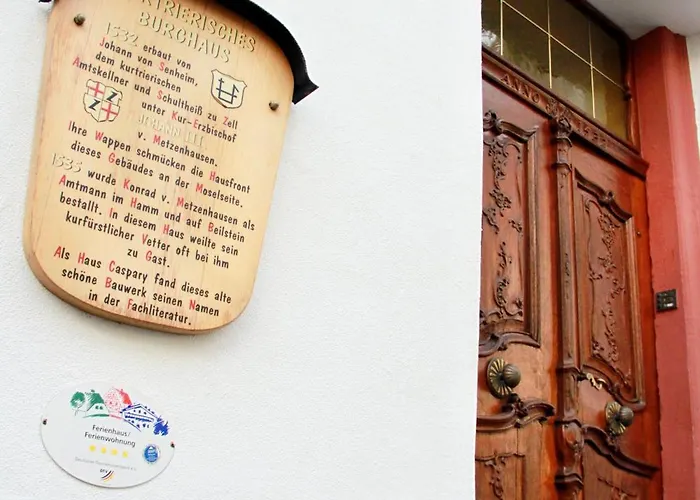 KURTRIERISCHES
BURGHAUS
1532 erbaut von
Johann von Senheim,
dem kurtrierischen
Amtskellner und Schultheiß zu Zell
unter Kur-Erzbischof
JOHANN III
v. Metzenhausen.
Ihre Wappen schmücken die Hausfront
dieses Gebäudes an der Moselseite.
1535 wurde Konrad v. Metzenhausen als
Amtmann im Hamm und auf Beilstein
bestallt. In diesem Haus weilte sein
kurfürstlicher Vetter oft bei ihm
zu Gast.
Als Haus Caspary fand dieses alte
schöne Bauwerk seinen Namen
in der Fachliteratur.
Ferienhaus/
Ferienwohnung
ANNO